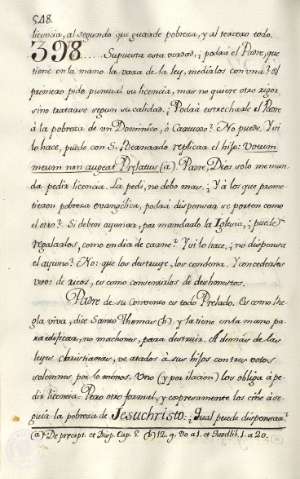 548.
licencia, al segundo que guarde pobreza, y al tercero todo.
398.....Supuesta esta verdad: ¿podrá el Padre, que
tiene en la mano la vara de la ley, medirlos con una? el
primero pide puntual su licencia, mas no quiere otro rigor
sino tratarse segun su calidad. ¿Podrá estrecharle el Padre
à la pobreza de un Dominico, ò Capucho? No puede. Y si
lo hace, puede con S. Bernardo replicar el hijo: Votum
meum non augeat Prelatus (a). Padre, Dios solo me man-
da pedir licencia. La pedí, no debo mas. ¿Y a los que prome-
tieron pobreza evangelica, podrá dispensar se porten como
el otro? Si deben ayunar, por mandarlo la Iglesia, ¿puede
regalarlos, como en dia de carne? Y si lo hace, ¿no dispensa
el ayuno? No: que los destruye, los condena. Y concederles
votos de ricos, es como consentirlos de deshonestos.
Padre de su Convento es todo Prelado. Es como Re-
gla viva, dice Santo Thomas (b) y la tiene en la mano pa-
ra edificar, no machones, para destruir. Ademàs de las
leyes christianas, ve atados à sus hijos con tres votos
solemnes por lo menos. Uno (y por ilacion) los obliga à pe-
dir licencia. Pero otro formal, y expresamente los ciñe à se-
guir la pobreza de Jesuchristo: ¿Qual puede dispensar?
(a) De precept. et Disp. Cap. 5. (b) 12. q. 90 a 1. et Quodlib. 1. a 20.